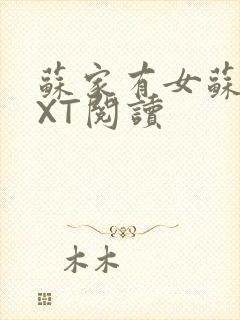 蘇家有女蘇
XT閱讀
木木